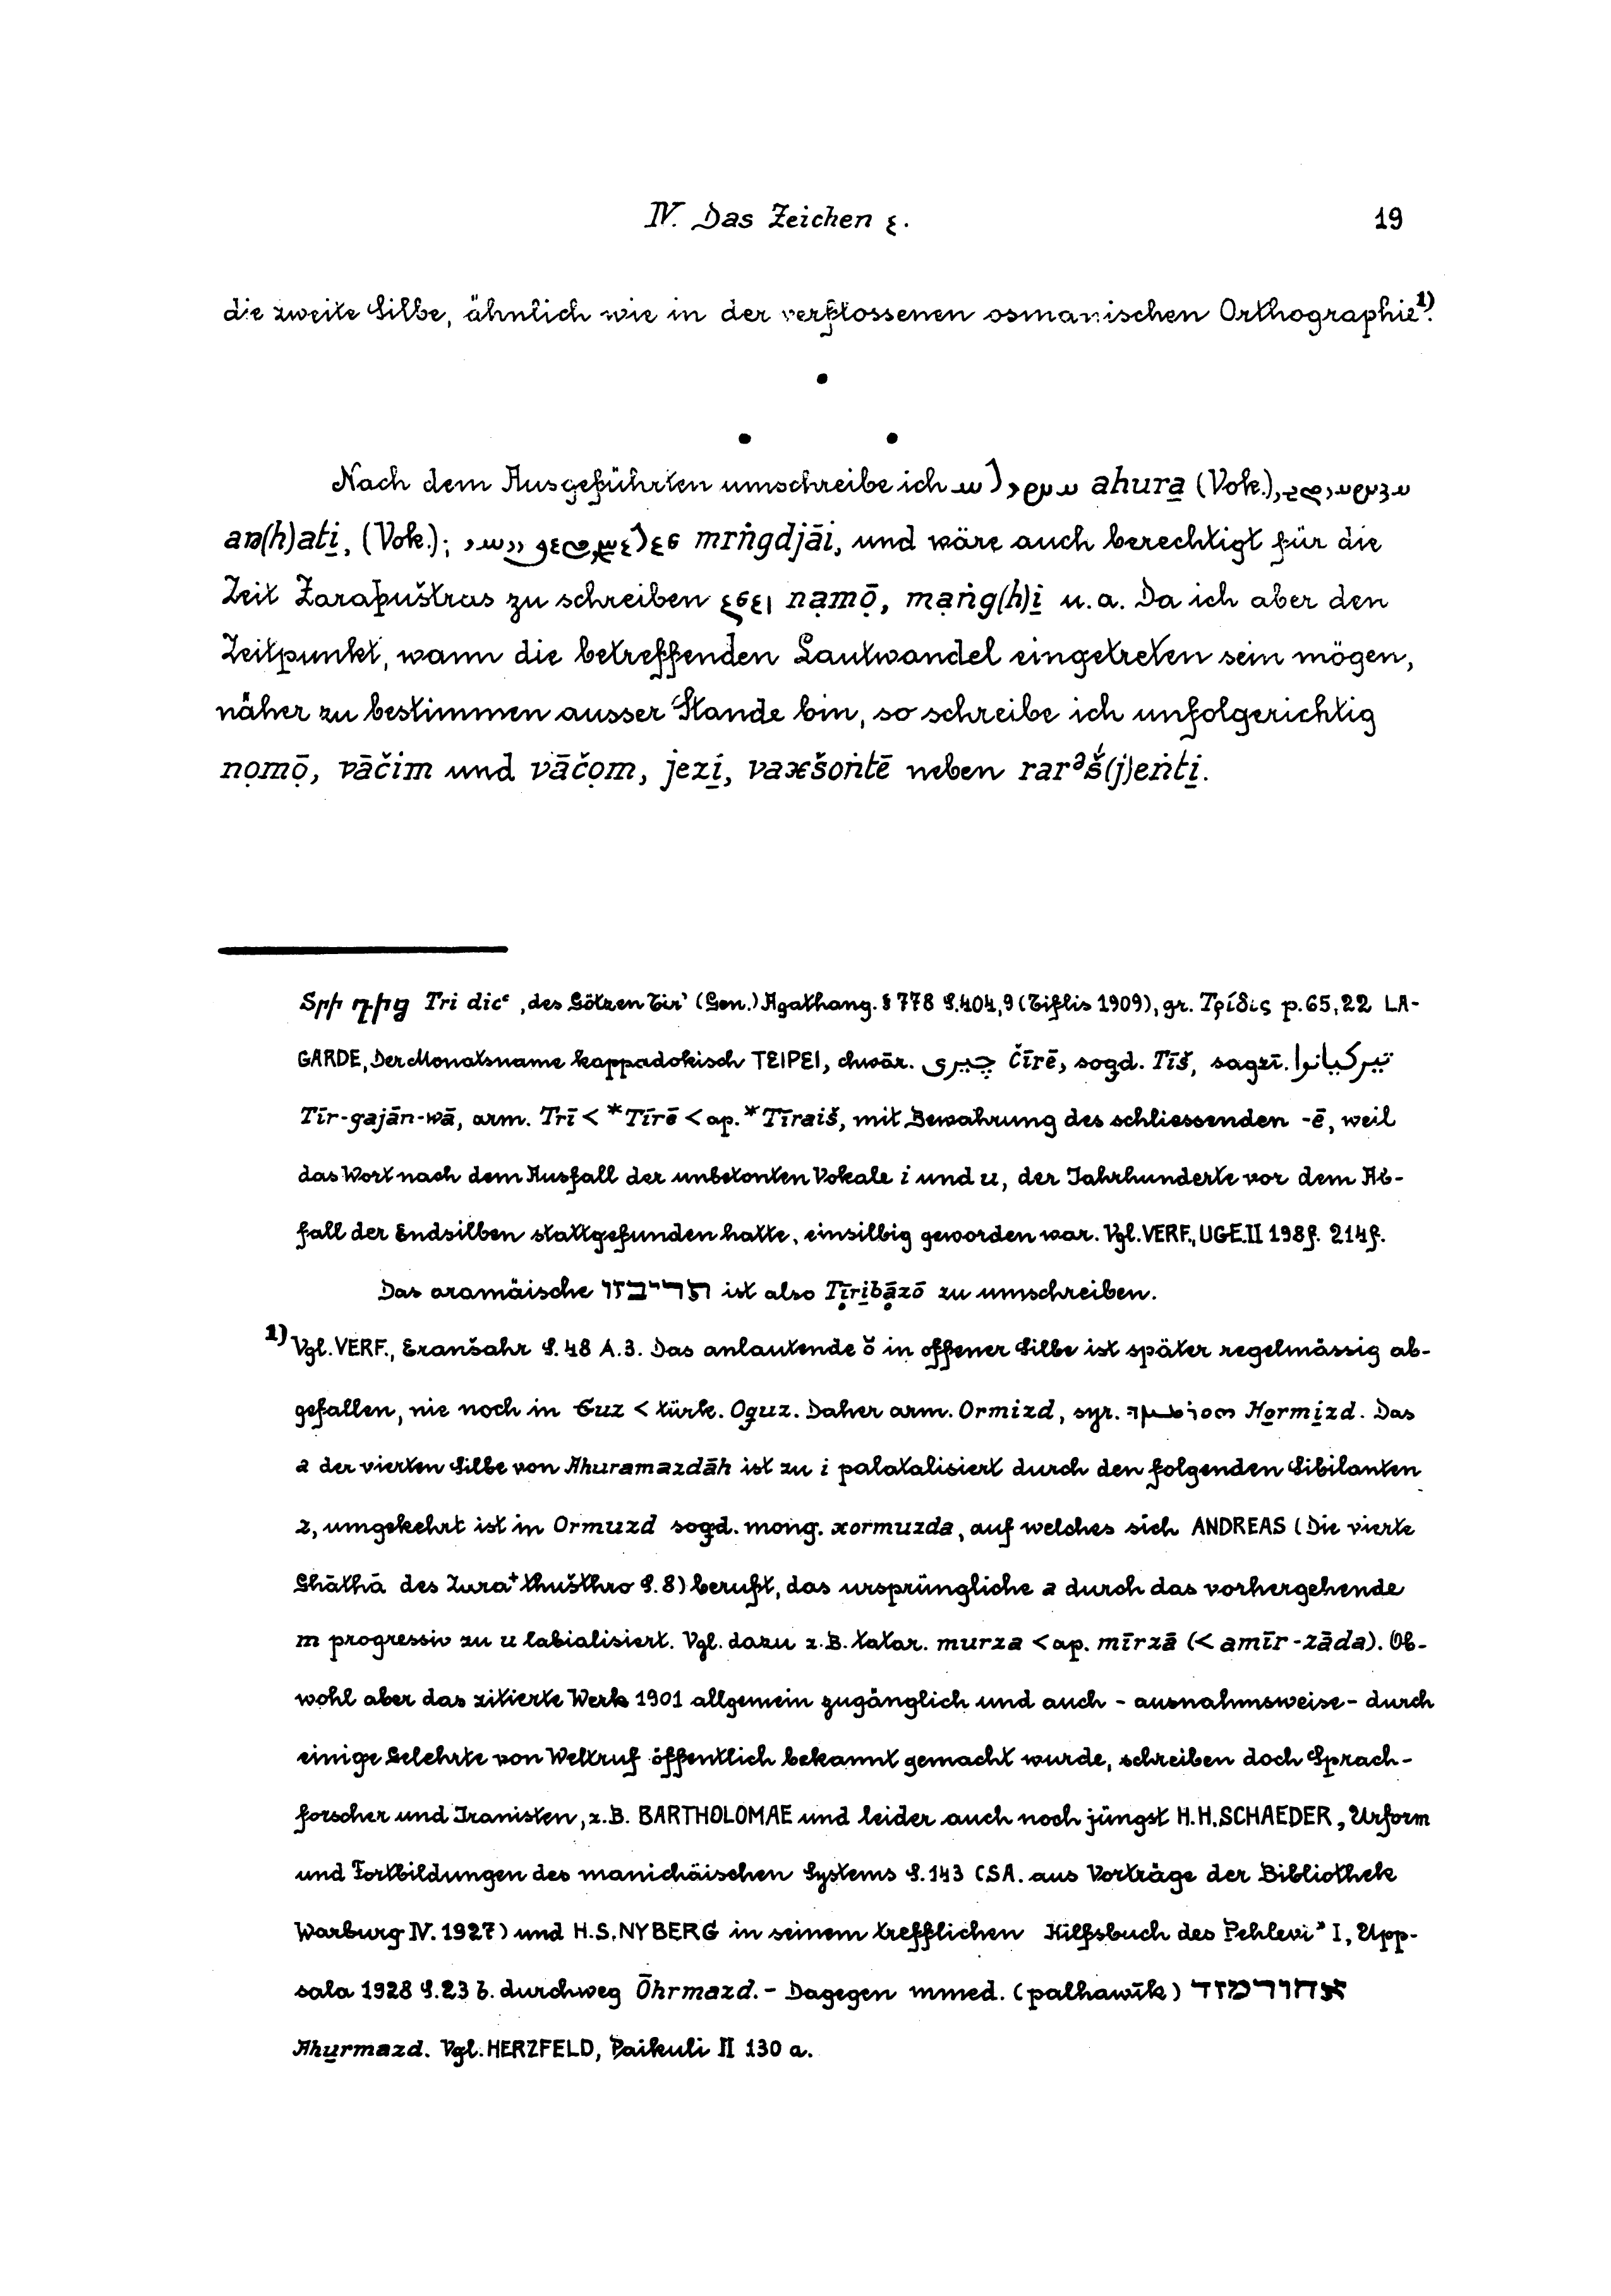 IV. Das Zeichen 𐬆. 19
die zweite Silbe, ähnlich wie in der verflossenen osmanischen Orthographie¹⁾.
Nach dem Ausgeführten umschreibe ich ahura̱ (Vok.),
(h)ati̱, (Vok.); mrṅgdjāi, und wäre auch berechtigt für die
Zeit Zaraþuštras zu schreiben nạmọ̄, mạṅg(h)i̱ u. a. Da ich aber den
Zeitpunkt, wann die betreffenden Lautwandel eingetreten sein mögen,
näher zu bestimmen ausser Stande bin, so schreibe ich unfolgerichtig
nọmọ̄, vāčim und vāčọm, jezi̱, vaxšoṅtē neben rarᵊš́(j)eṅti̱.
Տրի դից Tri dicʿ ‚des Götzen Tir’ (Gen.) Agathang. § 778 S. 404,9 (Tiflis 1909), gr. Τρίδις p. 65,22 LA-
GARDE, Der Monatsname kappadokisch ΤΕΙΡΕΙ, chwār. چیری Čīrē, sogd. Tīš, sagzī. تیرکیانوا
Tīr-gajān-wā, arm. Trī < *Tīrē < ap. *Tīraiš, mit Bewahrung des schliessenden -ē, weil
das Wort nach dem Ausfall der unbetonten Vokale i und u, der Jahrhunderte vor dem Ab-
fall der Endsilben stattgefunden hatte, einsilbig geworden war. Vgl. VERF., UGE. II 198f. 214f.
Das aramäische תריבזו ist also Tīri̱bāzō zu umschreiben.
1) Vgl. VERF., Eranšahr S. 48 A. 3. Das anlautende ŏ in offener Silbe ist später regelmässig ab-
gefallen, nie noch in Guz < türk. Oguz. Daher arm. Ormizd, syr. ܗܘܪܡܝܙܕ Ho̱rmi̱zd. Das
a der vierten Silbe von Ahuramazdāh ist zu i palatalisiert durch den folgenden Sibilanten
z, umgekehrt ist in Ormuzd sogd. mong. xormuzda, auf welches sich ANDREAS (Die vierte
Ghāthā des Zura⁺thušthro S. 8) beruft, das ursprüngliche a durch das vorhergehende
m progressiv zu u labialisiert. Vgl. dazu z. B. tatar. murza < ap. mīrzā (< amīr-zāda). Ob-
wohl aber das zitierte Werk 1901 allgemein zugänglich und auch - ausnahmsweise - durch
einige Gelehrte von Weltruf öffentlich bekannt gemacht wurde, schreiben doch Sprach-
forscher und Iranisten, z. B. BARTHOLOMAE und leider auch noch jüngst H. H. SCHAEDER, Urform
und Fortbildungen des manichäischen Systems S. 143 (SA. aus Vorträge der Bibliothek
Warburg IV. 1927) und H. S. NYBERG in seinem trefflichen Hilfsbuch des Pehlevi" I, Upp-
sala 1928 S. 23 b. durchweg Ōhrmazd. - Dagegen mmed. (palhawīk) אחורמזד
Ahu̱rmazd. Vgl. HERZFELD, Paikuli II 130 a.